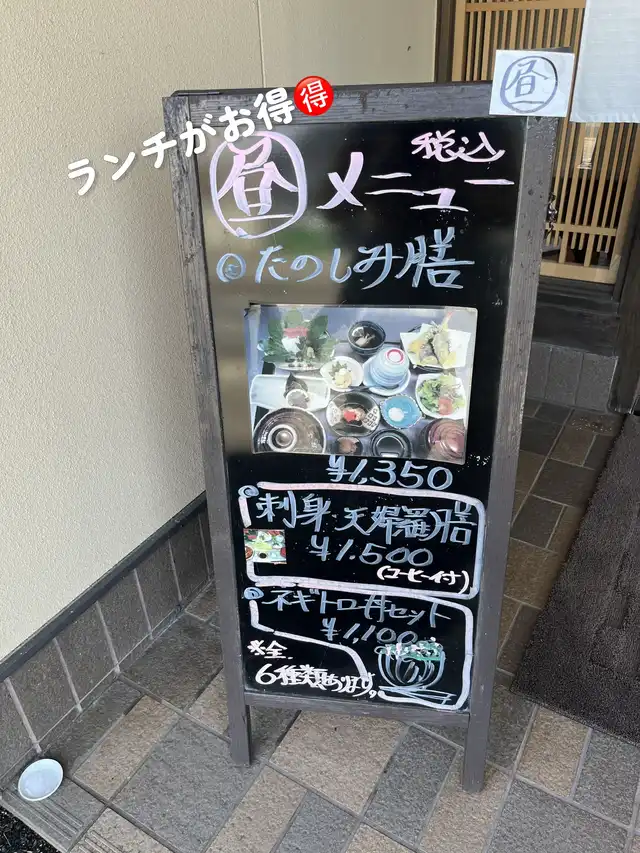 ランチがお得🉐
昼
昼 メニュー 税込
たのしみ膳
¥1,350
刺身 天婦羅膳
¥1,500
(コーヒー付)
ネギトロ丼セット
¥1,100
※全
6種類あります。